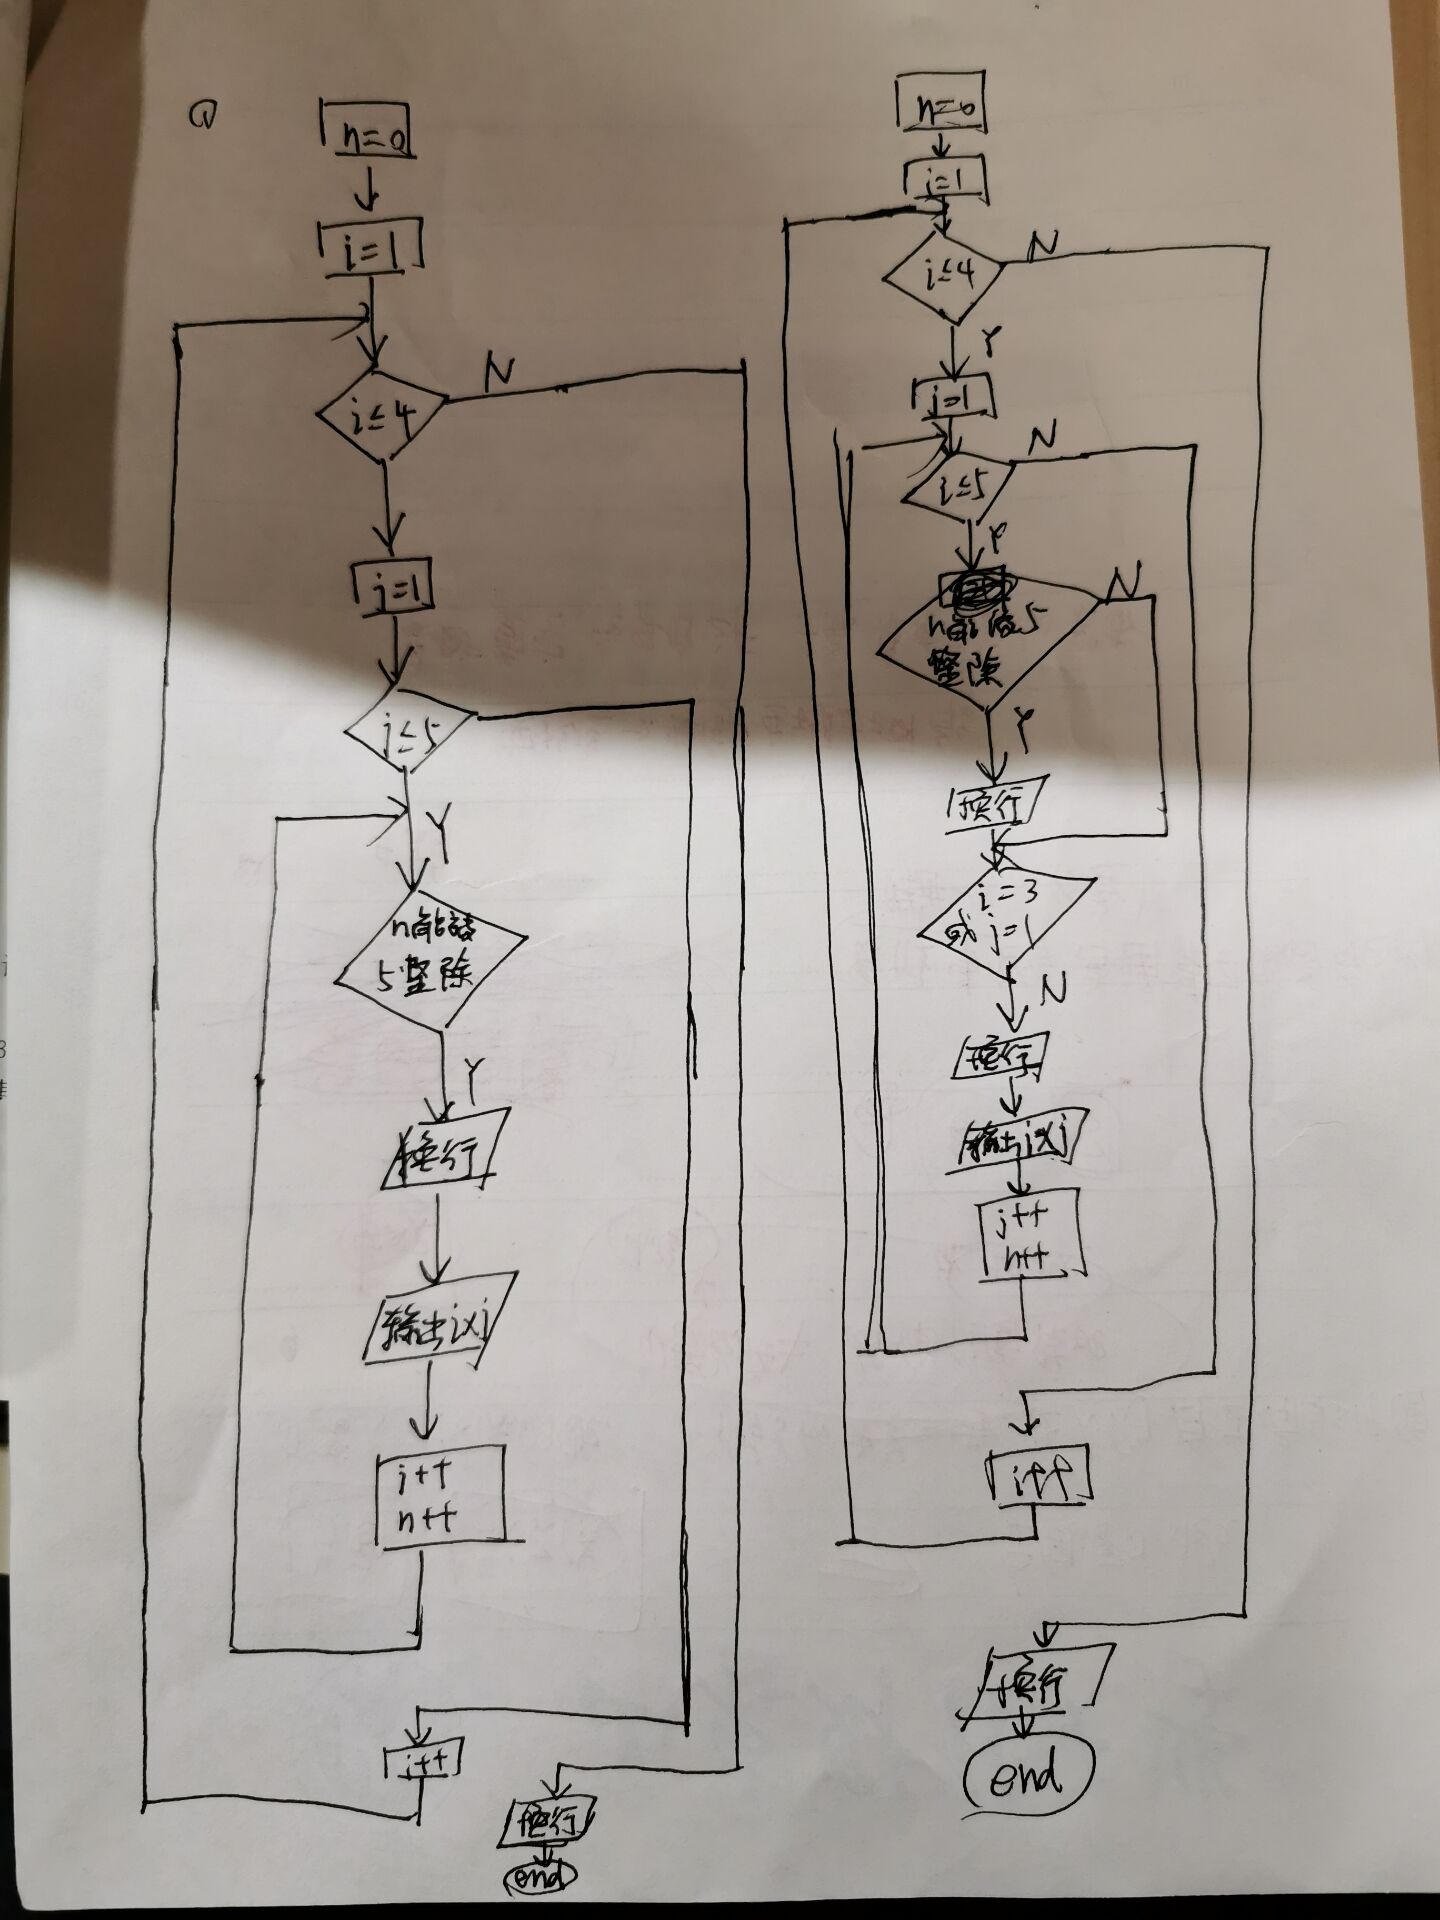 ①
n=0
i=1
i≤4
N
j=1
j≤5
Y
n能被
5整除
Y
换行
输出i×j
j++
n++
i++
换行
end
n=0
i=1
i≤4
N
Y
j=1
j≤5
N
Y
n能被5
整除
N
Y
换行
i=3
或j=1
N
换行
输出i×j
j++
n++
i++
换行
end